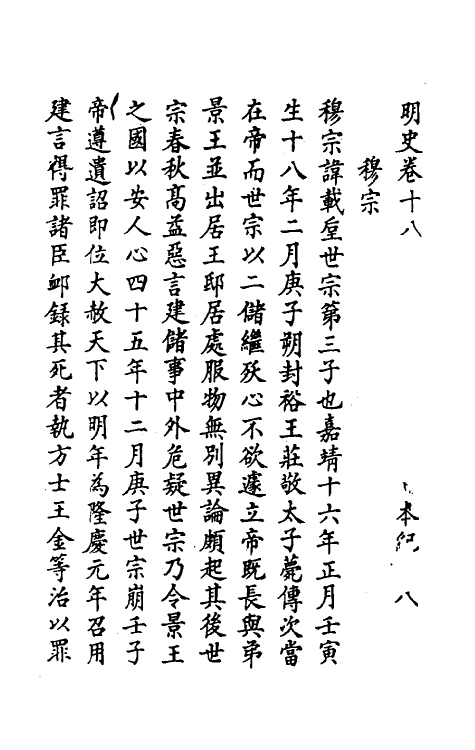 明史卷十八　本紀　八
穆宗
穆宗諱載垕世宗第三子也嘉靖十六年正月壬寅
生十八年二月庚子朔封裕王莊敬太子薨傳次當
在帝而世宗以二儲繼殀心不欲遽立帝既長與弟
景王並出居王邸居處服物無別異論頗起其後世
宗春秋高益惡言建儲事中外危疑世宗乃令景王
之國以安人心四十五年十二月庚子世宗崩壬子
帝遵遺詔即位大赦天下以明年為隆慶元年召用
建言得罪諸臣卹録其死者執方士王金等治以罪